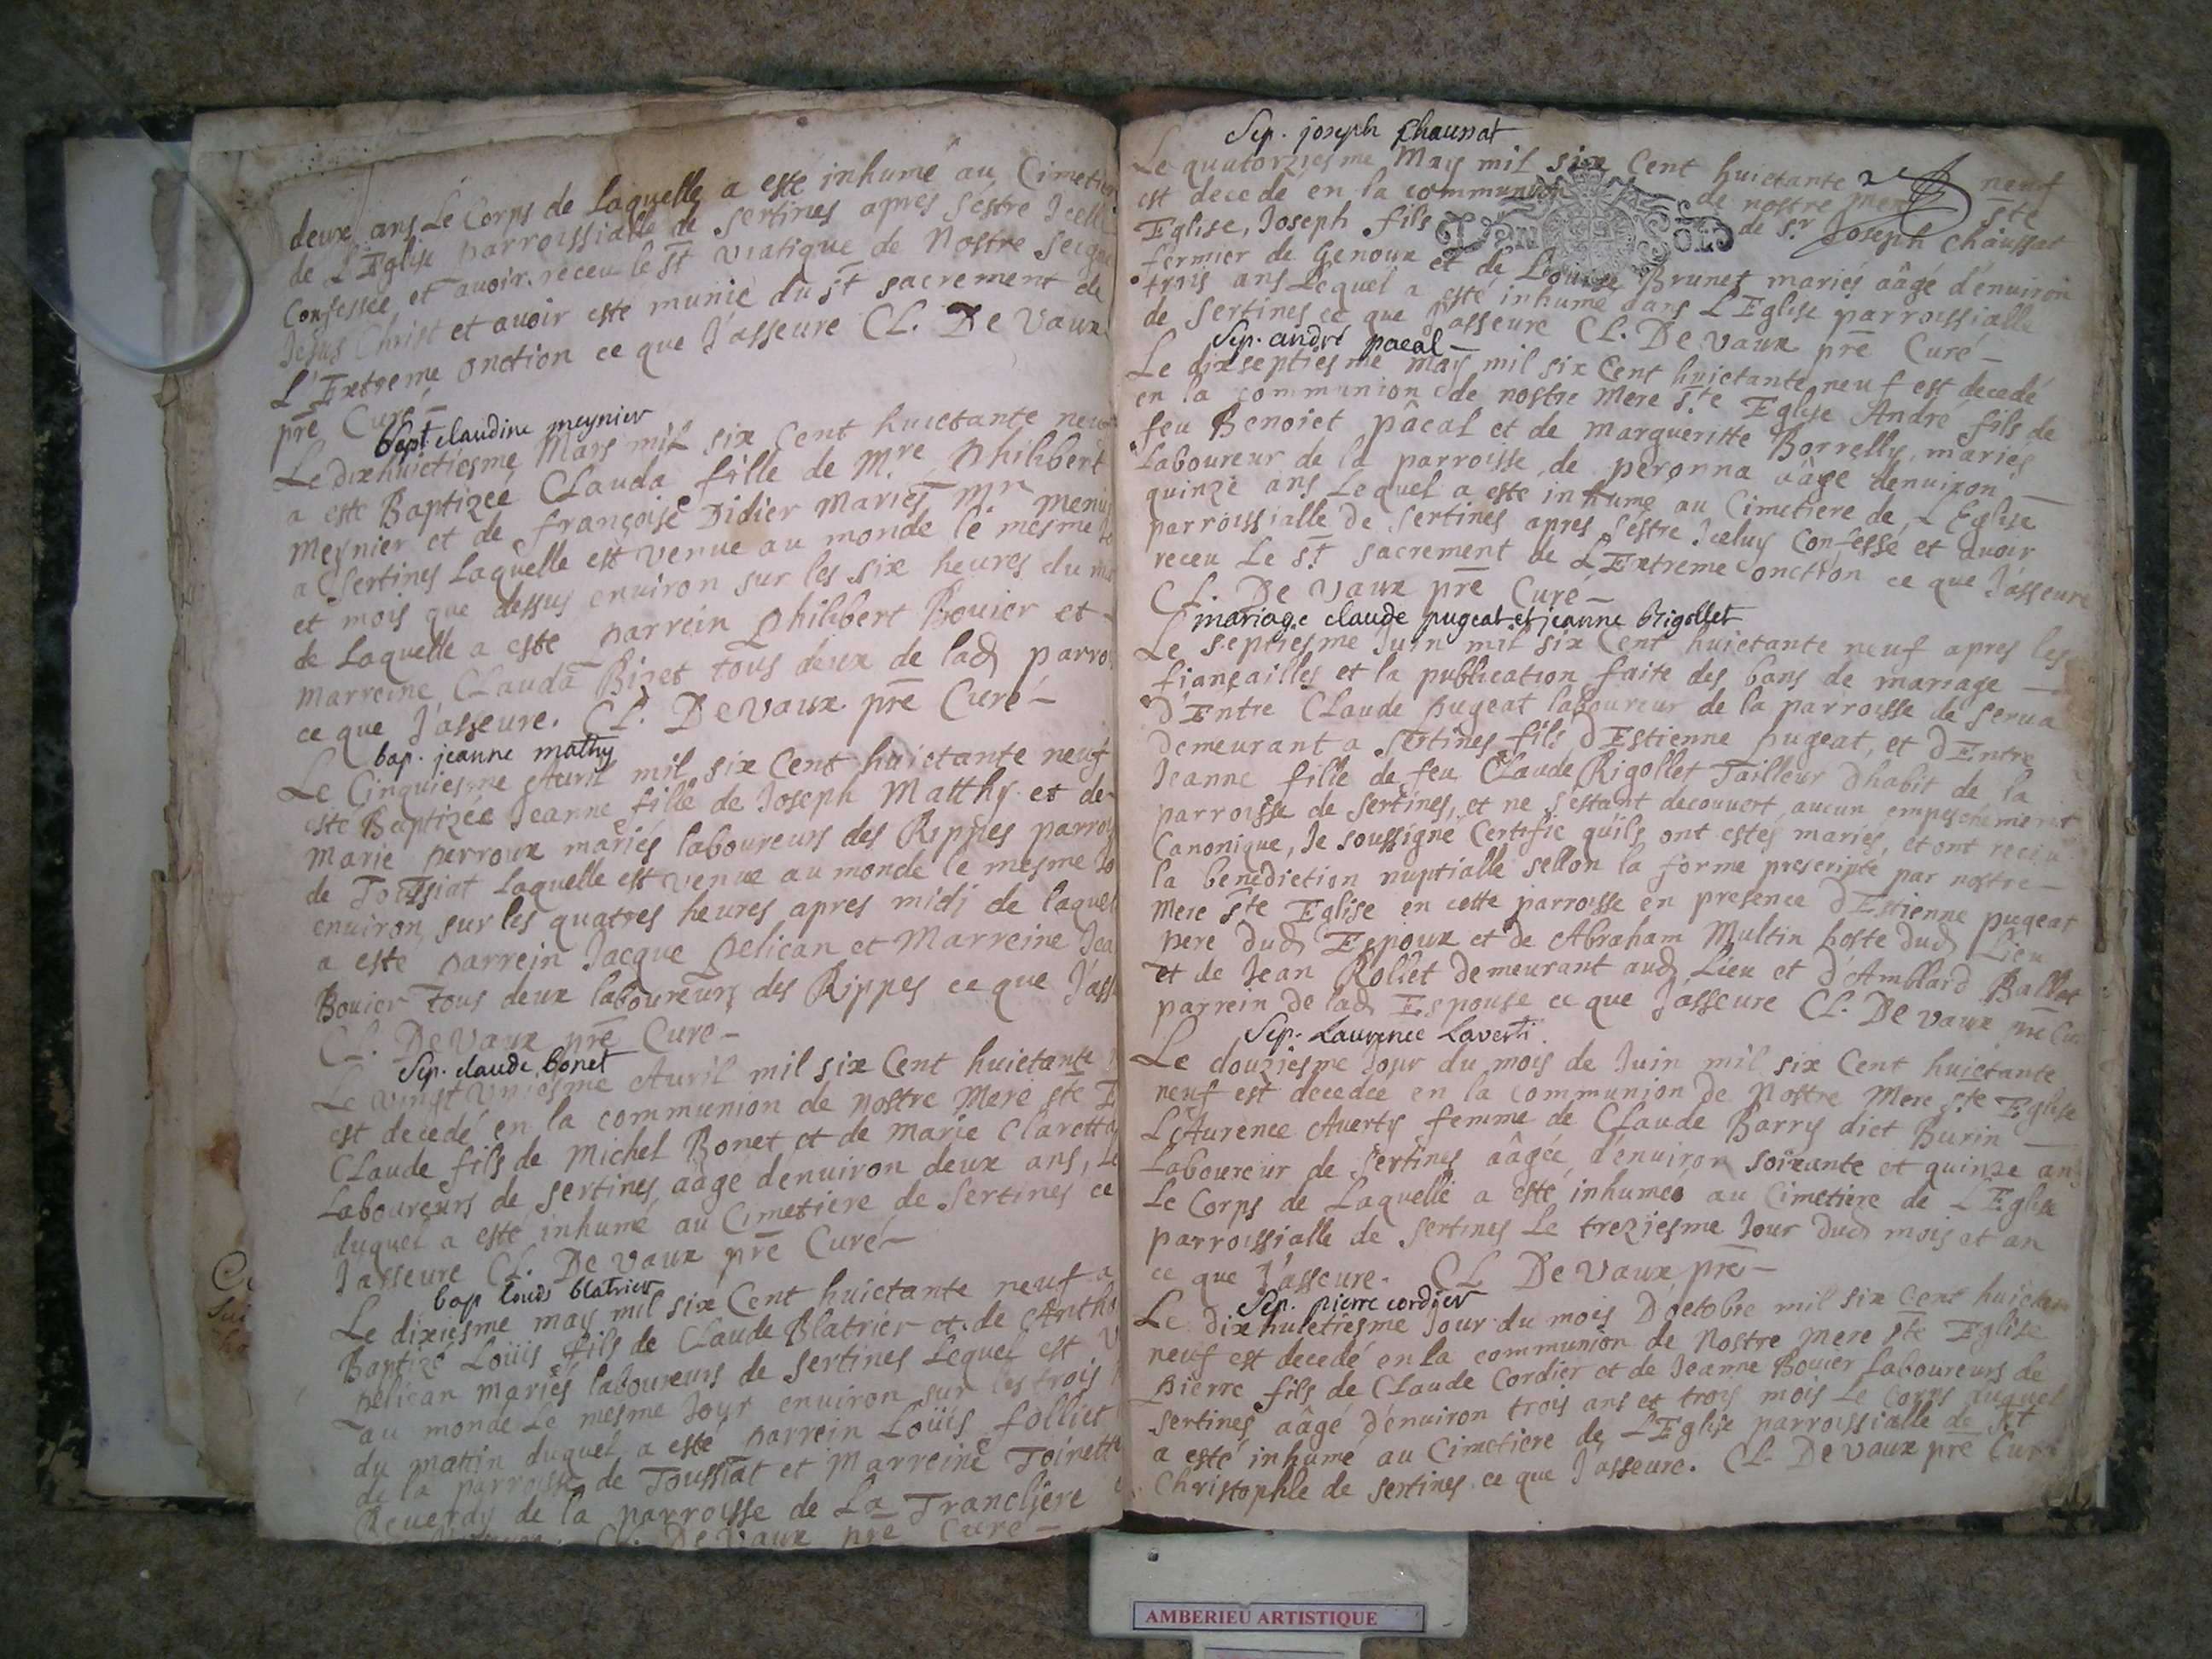 deux ans Le Corps de Laquelle a esté inhumé au Cimetier
de L'Eglise parroissialle de sertines apres s'estre Icell
Confessée et avoir receu le st viatique de Nostre seign
Jesus Christ et avoir esté munie du st sacrement de
L'Extreme onction ce que J'asseure CL. De Vaux
pre Curé
bapt claudine meynier
Le dixhuictiesme Mars mil six Cent huictante neuf
a este Baptizeé Clauda fille de Mre Philibert
Meynier et de françoise Didier Mariés Mr menui
a Sertines Laquelle est venue au monde le mesme
et mois que dessus environ sur les six heures du
de Laquelle a este parrein Philibert Bouier et
marreine Clauda Bizet tous deux de lad parro
ce que J'asseure. CL. De Vaux pre Curé
bap. jeanne mathy
Le Cinquiesme Auril mil six Cent huictante neuf
esté Baptizée Jeanne fille de Joseph Matthy et de
Marie perroux mariés laboureurs des Rippes parroi
de Tossiat Laquelle est venue au monde le mesme Jo
environ sur les quatres heures apres midi de laquel
a este parrein Jacque pelican et Marreine Jea
Bouier tous deux laboureurs des Rippes ce que J'ass
CL. De Vaux pre Curé
Sep. claude bonet
Le vingt vniesme Auril mil six Cent huictante
est decedé en la communion de nostre Mere ste E
CLaude fils de Michel Bonet et de Marie Claretta
Laboureurs de sertines, aâgé denuiron deux ans, Le
duquel a esté inhumé au Cimetiere de Sertines ce
J'asseure CL. De Vaux pre Curé
bap Louis blatrier
Le dixiesme may mil six Cent huictante neuf a
Baptizé Loüis fils de CLaude Blatrier et de Antho
pelican mariés laboureurs de sertines Lequel est v
au monde Le mesme Jour environ sur les trois
du mattin duquel a esté parrein Loüis folliet
de la parroisse de Toussiat et Marreine Toinette
Reuerdy de la parroisse de La Trancliere
CL. De Vaux pre Curé
Sep. joseph Chaussat
Le quatorziesme May mil six Cent huictante neuf
est decede en la communion de nostre mere ste
Eglise, Joseph fils de sr Joseph Chaussat
fermier de Genoux et de Louise Brunet mariés aâgé d'enuiron
trois ans Lequel a esté inhumé dans L'Eglise parroissialle
de Sertines ce que J'asseure CL. De Vaux pre Curé
Sep. andré pacal
Le dixseptiesme May mil six Cent huictante neuf est decedé
en la communion de nostre Mere ste Eglise André fils de
feu Benoict Pâcal et de margueritte Borrelly, mariés
Laboureur de la parroisse de peronna aâgé denuiron
quinze ans Lequel a este inhumé au Cimetiere de L'Eglise
parroissialle de Sertines apres s'estre Iceluy Confessé et auoir
receu Le st sacrement de L'Extreme onction ce que J'asseure
CL. De Vaux pre Curé
mariage claude pugeat et jeanne brigollet
Le septiesme Juin mil six Cent huictante neuf apres les
fiançailles et la publication faite des bans de mariage
d'Entre CLaude pugeat laboureur de la parroisse de Serua
demeurant a sertines fils d'Estienne pugeat, et d'Entre
Jeanne fille de feu CLaude Rigollet Tailleur d'habit de la
parroisse de Sertines, et ne s'estant decouuert aucun empeschement
Canonique, Je soussigne Certifie qu'ils ont estés mariés, et ont receu
la benediction nuptialle sellon la forme prescripte par nostre
Mere ste Eglise en cette parroisse en presence d'Estienne pugeat
pere dud Espoux et de Abraham Multin hoste dud Lieu
et de Jean Rollet demeurant aud Lieu et d'Amblard Ballet
parrein de lad Espouse ce que J'asseure CL. De Vaux pre Cur
Sep. Laurence Laverti
Le douziesme Jour du mois de Juin mil six Cent huictante
neuf est decedee en la communion de Nostre Mere ste Eglise
LAurence Auerty femme de Claude Barry dict Burin
Laboureur de Sertines aâgée d'enuiron soixante et quinze ans
Le Corps de Laquelle a esté inhumé au Cimetiere de L'Eglise
parroissialle de Sertines Le treziesme Jour dud mois et an
ce que J'asseure. CL De Vaux pre
Sep. pierre cordier
Le dixhuictiesme Jour du mois D'octobre mil six Cent huictan
neuf est decedé en la communion de Nostre mere ste Eglise
Pierre fils de CLaude Cordier et de Jeanne Bouier Laboureurs de
sertines, aâgé d'enuiron trois ans et trois mois Le Corps duquel
a esté inhumé au Cimetiere de L'Eglise parroissialle de st
Christophle de sertines ce que J'asseure. CL. De Vaux pre Curé
AMBERIEU ARTISTIQUE